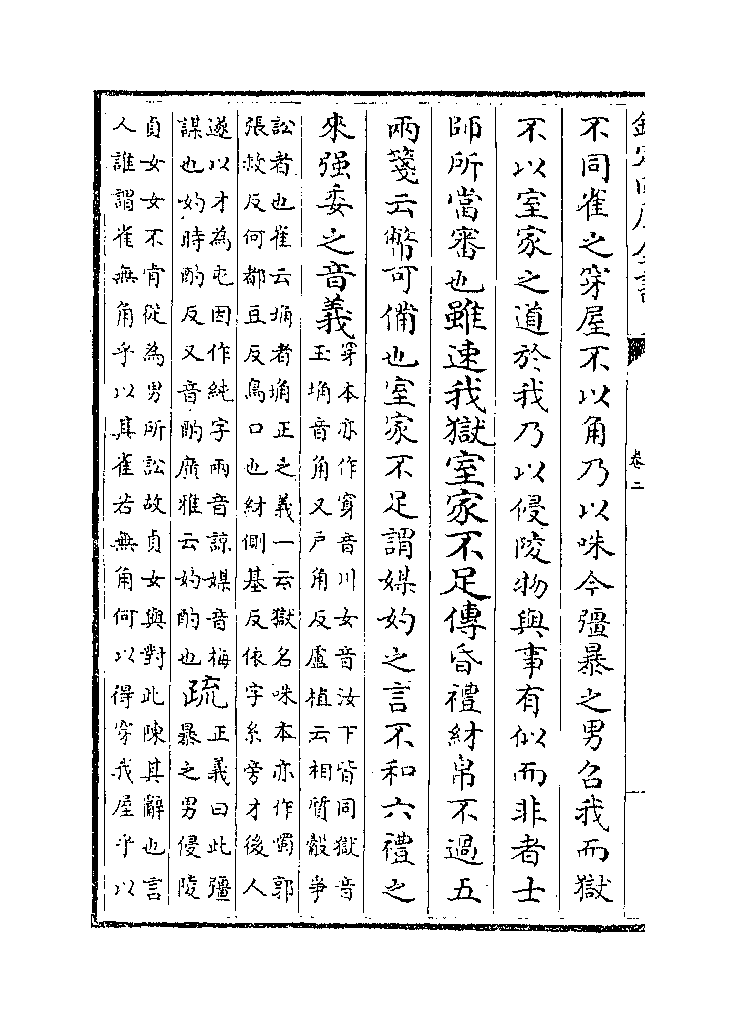 欽定四庫全書 卷二
不同雀之穿屋不以角乃以咮今彊暴之男召我而獄
不以室家之道於我乃以侵陵物與事有似而非者士
師所當審也雖速我獄室家不足傳昏禮紂帛不過五
兩箋云幣可備也室家不足謂媒妁之言不和六禮之
來强委之音義穿本亦作穿音川女音汝下皆同獄音
玉埆音角又戸角反盧植云相質觳爭
訟者也崔云埆者埆正之義一云獄名咮本亦作噣郭
張救反何都豆反鳥口也紂側基反依字糸旁才後人
遂以才為屯因作純字兩音諒媒音梅
謀也妁時酌反又音酌廣雅云妁酌也疏正義曰此彊
暴之男侵陵
貞女女不肯從為男所訟故貞女與對此陳其辭也言
人誰謂雀無角乎以其雀若無角何以得穿我屋乎以